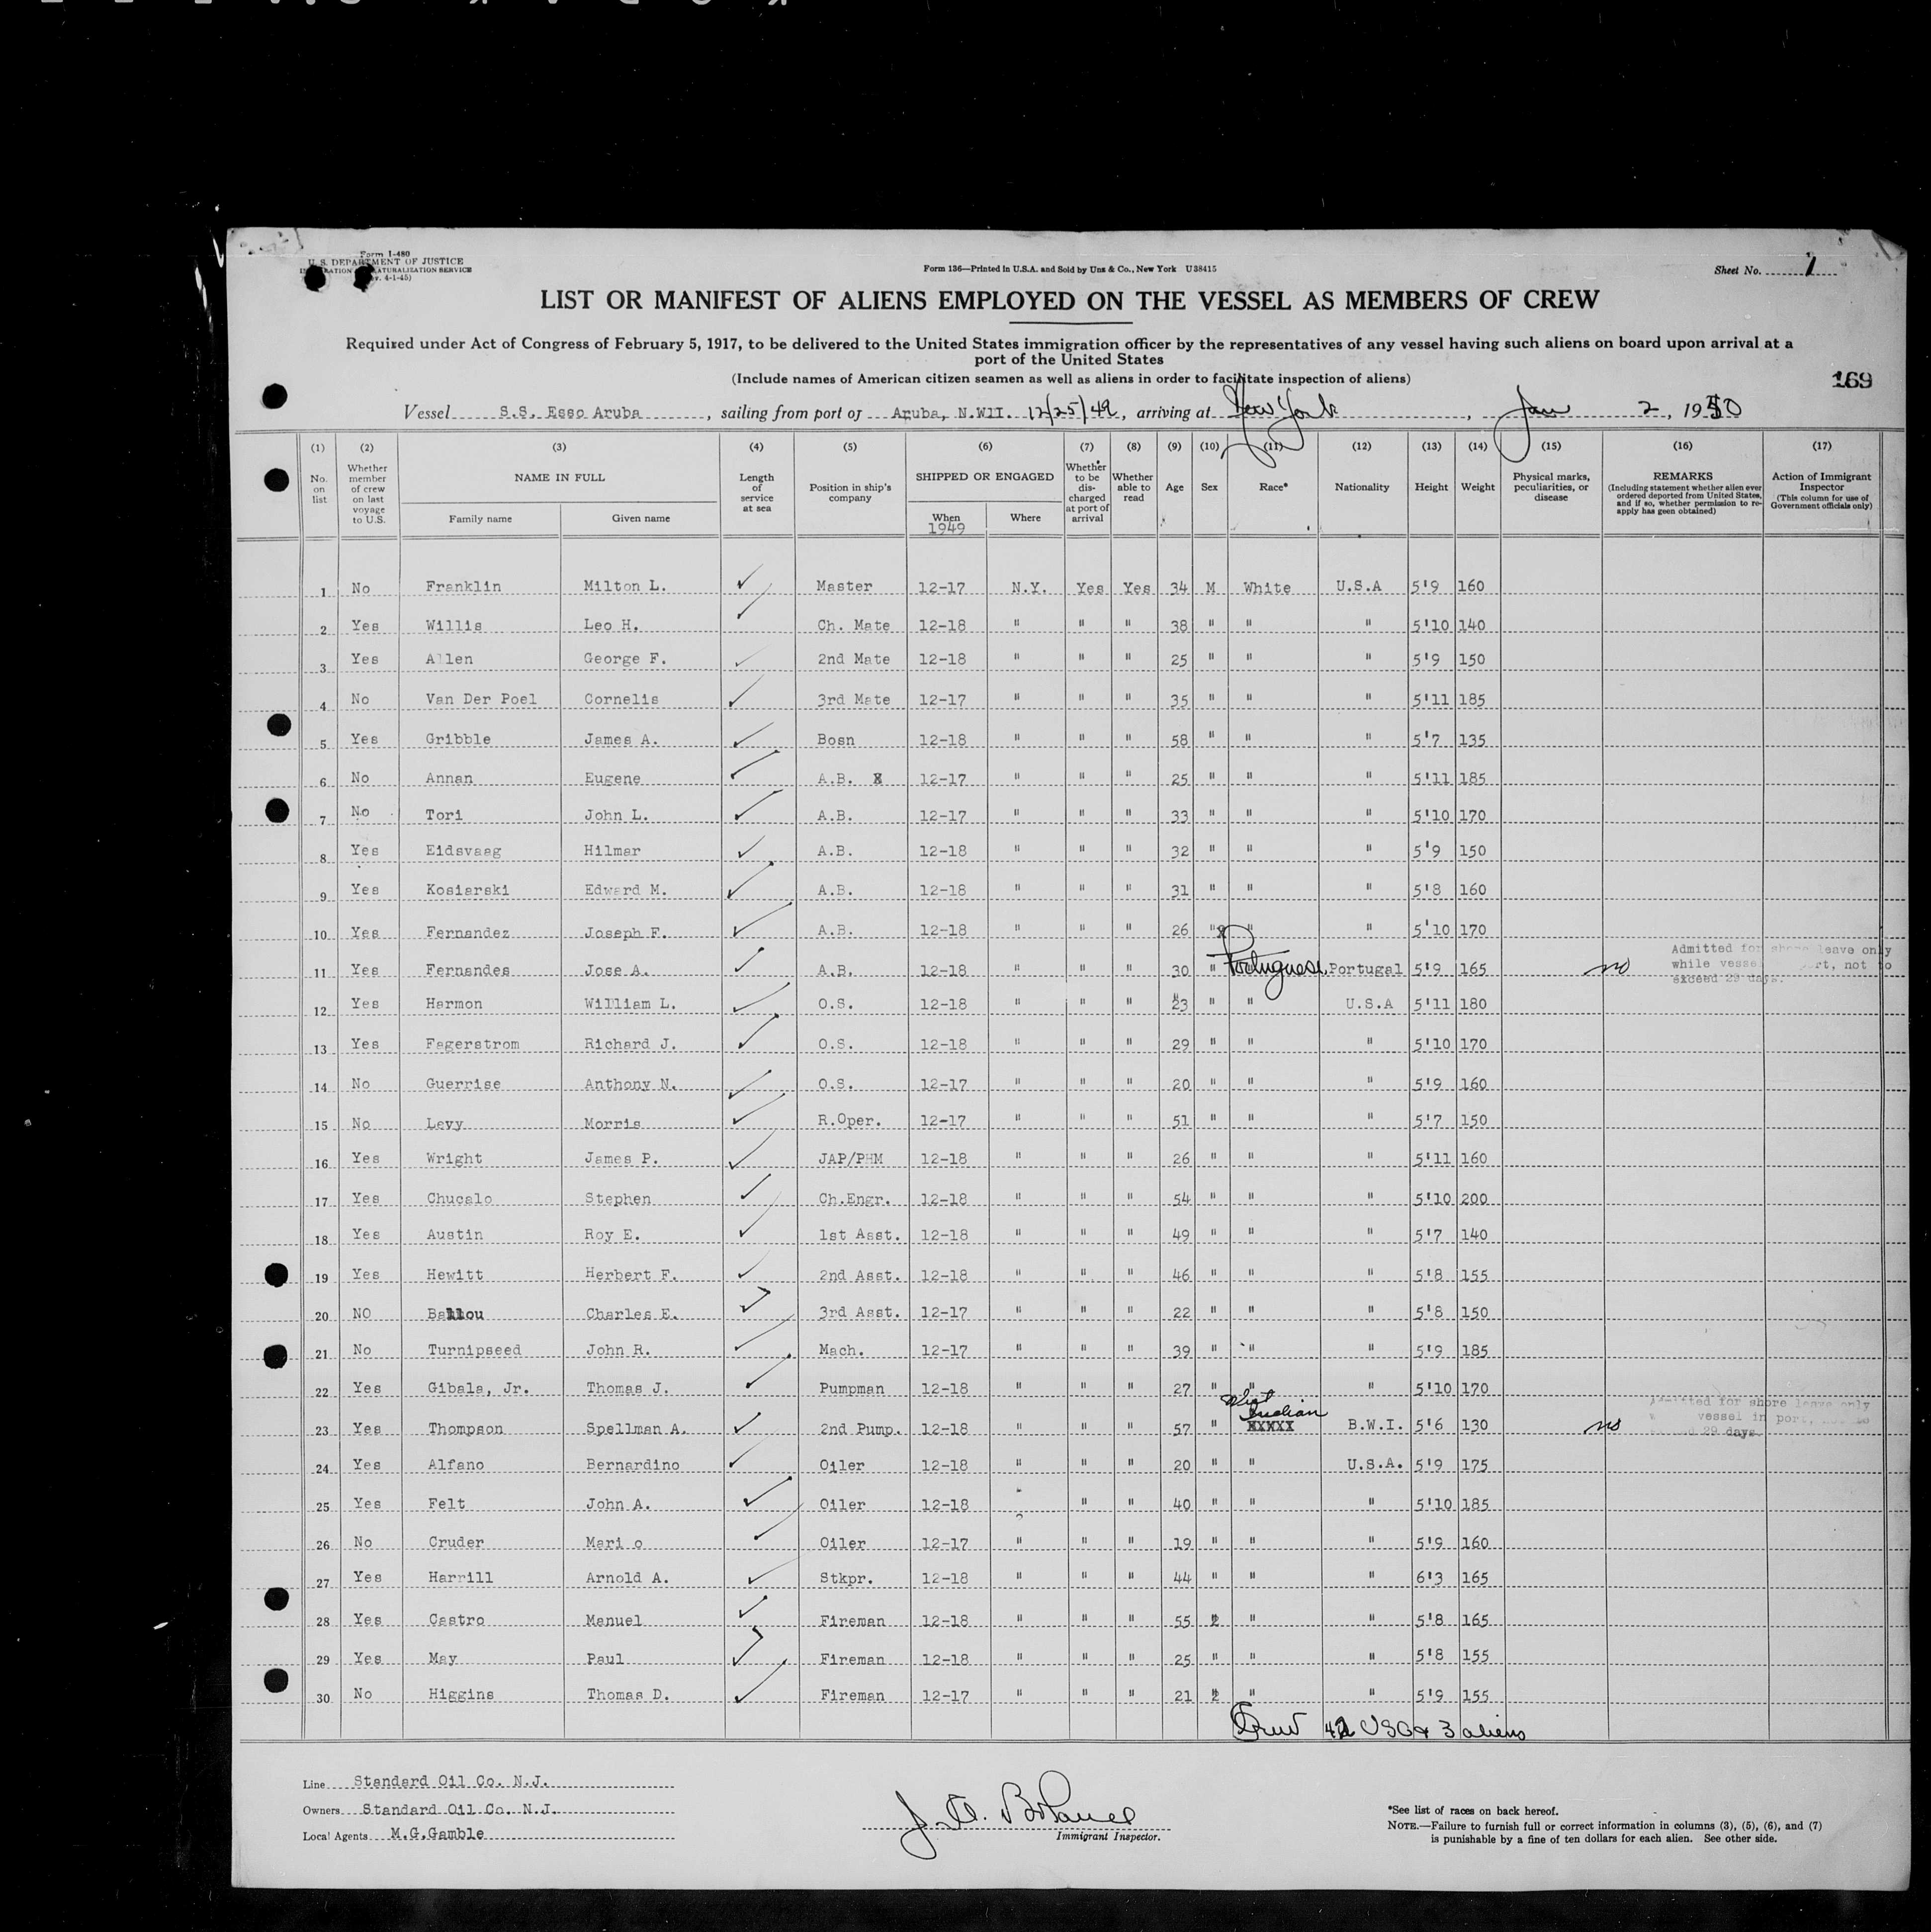 Form I-480
U. S. DEPARTMENT OF JUSTICE
NATURALIZATION SERVICE
4-1-45)
Form 136—Printed in U.S.A. and Sold by Unz & Co., New York U38415
Sheet No. 1
LIST OR MANIFEST OF ALIENS EMPLOYED ON THE VESSEL AS MEMBERS OF CREW
Required under Act of Congress of February 5, 1917, to be delivered to the United States immigration officer by the representatives of any vessel having such aliens on board upon arrival at a
port of the United States
(Include names of American citizen seamen as well as aliens in order to facilitate inspection of aliens)
169
Vessel S.S. Esso Aruba, sailing from port of Aruba, N.WII. 12/25/49, arriving at New York, Jan 2, 1950
(1) (2) (3) (4) (5) (6) (7) (8) (9) (10) (11) (12) (13) (14) (15) (16) (17)
No. on list
Whether member of crew on last voyage to U.S.
NAME IN FULL
Family name
Given name
Length of service at sea
Position in ship's company
SHIPPED OR ENGAGED
When 1949
Where
Whether to be discharged at port of arrival
Whether able to read
Age
Sex
Race*
Nationality
Height
Weight
Physical marks, peculiarities, or disease
REMARKS
(Including statement whether alien ever ordered deported from United States, and if so, whether permission to re-apply has geen obtained)
Action of Immigrant Inspector
(This column for use of Government officials only)
1 No Franklin Milton L. Master 12-17 N.Y. Yes Yes 34 M White U.S.A 5'9 160
2 Yes Willis Leo H. Ch. Mate 12-18 " " " 38 " " " 5'10 140
3 Yes Allen George F. 2nd Mate 12-18 " " " 25 " " " 5'9 150
4 No Van Der Poel Cornelis 3rd Mate 12-17 " " " 35 " " " 5'11 185
5 Yes Gribble James A. Bosn 12-18 " " " 58 " " " 5'7 135
6 No Annan Eugene A.B. 12-17 " " " 25 " " " 5'11 185
7 No Tori John L. A.B. 12-17 " " " 33 " " " 5'10 170
8 Yes Eidsvaag Hilmar A.B. 12-18 " " " 32 " " " 5'9 150
9 Yes Kosiarski Edward M. A.B. 12-18 " " " 31 " " " 5'8 160
10 Yes Fernandez Joseph F. A.B. 12-18 " " " 26 " " " 5'10 170
11 Yes Fernandes Jose A. A.B. 12-18 " " " 30 " Portuguese Portugal 5'9 165 no Admitted for shore leave only while vessel port, not to exceed 29 days.
12 Yes Harmon William L. O.S. 12-18 " " " 23 " " U.S.A 5'11 180
13 Yes Fagerstrom Richard J. O.S. 12-18 " " " 29 " " " 5'10 170
14 No Guerrise Anthony N. O.S. 12-17 " " " 20 " " " 5'9 160
15 No Levy Morris R.Oper. 12-17 " " " 51 " " " 5'7 150
16 Yes Wright James P. JAP/PHM 12-18 " " " 26 " " " 5'11 160
17 Yes Chucalo Stephen Ch.Engr. 12-18 " " " 54 " " " 5'10 200
18 Yes Austin Roy E. 1st Asst. 12-18 " " " 49 " " " 5'7 140
19 Yes Hewitt Herbert F. 2nd Asst. 12-18 " " " 46 " " " 5'8 155
20 NO Ballou Charles E. 3rd Asst. 12-17 " " " 22 " " " 5'8 150
21 No Turnipseed John R. Mach. 12-17 " " " 39 " " " 5'9 185
22 Yes Gibala, Jr. Thomas J. Pumpman 12-18 " " " 27 " " " 5'10 170
23 Yes Thompson Spellman A. 2nd Pump. 12-18 " " " 57 " West Indian XXXXX B.W.I. 5'6 130 no Admitted for shore leave only vessel in port, not to 29 days.
24 Yes Alfano Bernardino Oiler 12-18 " " " 20 " " U.S.A. 5'9 175
25 Yes Felt John A. Oiler 12-18 " " " 40 " " " 5'10 185
26 No Cruder Mari o Oiler 12-17 " " " 19 " " " 5'9 160
27 Yes Harrill Arnold A. Stkpr. 12-18 " " " 44 " " " 6'3 165
28 Yes Castro Manuel Fireman 12-18 " " " 55 " " " 5'8 165
29 Yes May Paul Fireman 12-18 " " " 25 " " " 5'8 155
30 No Higgins Thomas D. Fireman 12-17 " " " 21 " " " 5'9 155
Crew 42 USC & 3 aliens
Line Standard Oil Co. N.J.
Owners Standard Oil Co. N.J.
Local Agents M.G.Gamble
Immigrant Inspector.
*See list of races on back hereof.
NOTE.—Failure to furnish full or correct information in columns (3), (5), (6), and (7)
is punishable by a fine of ten dollars for each alien. See other side.